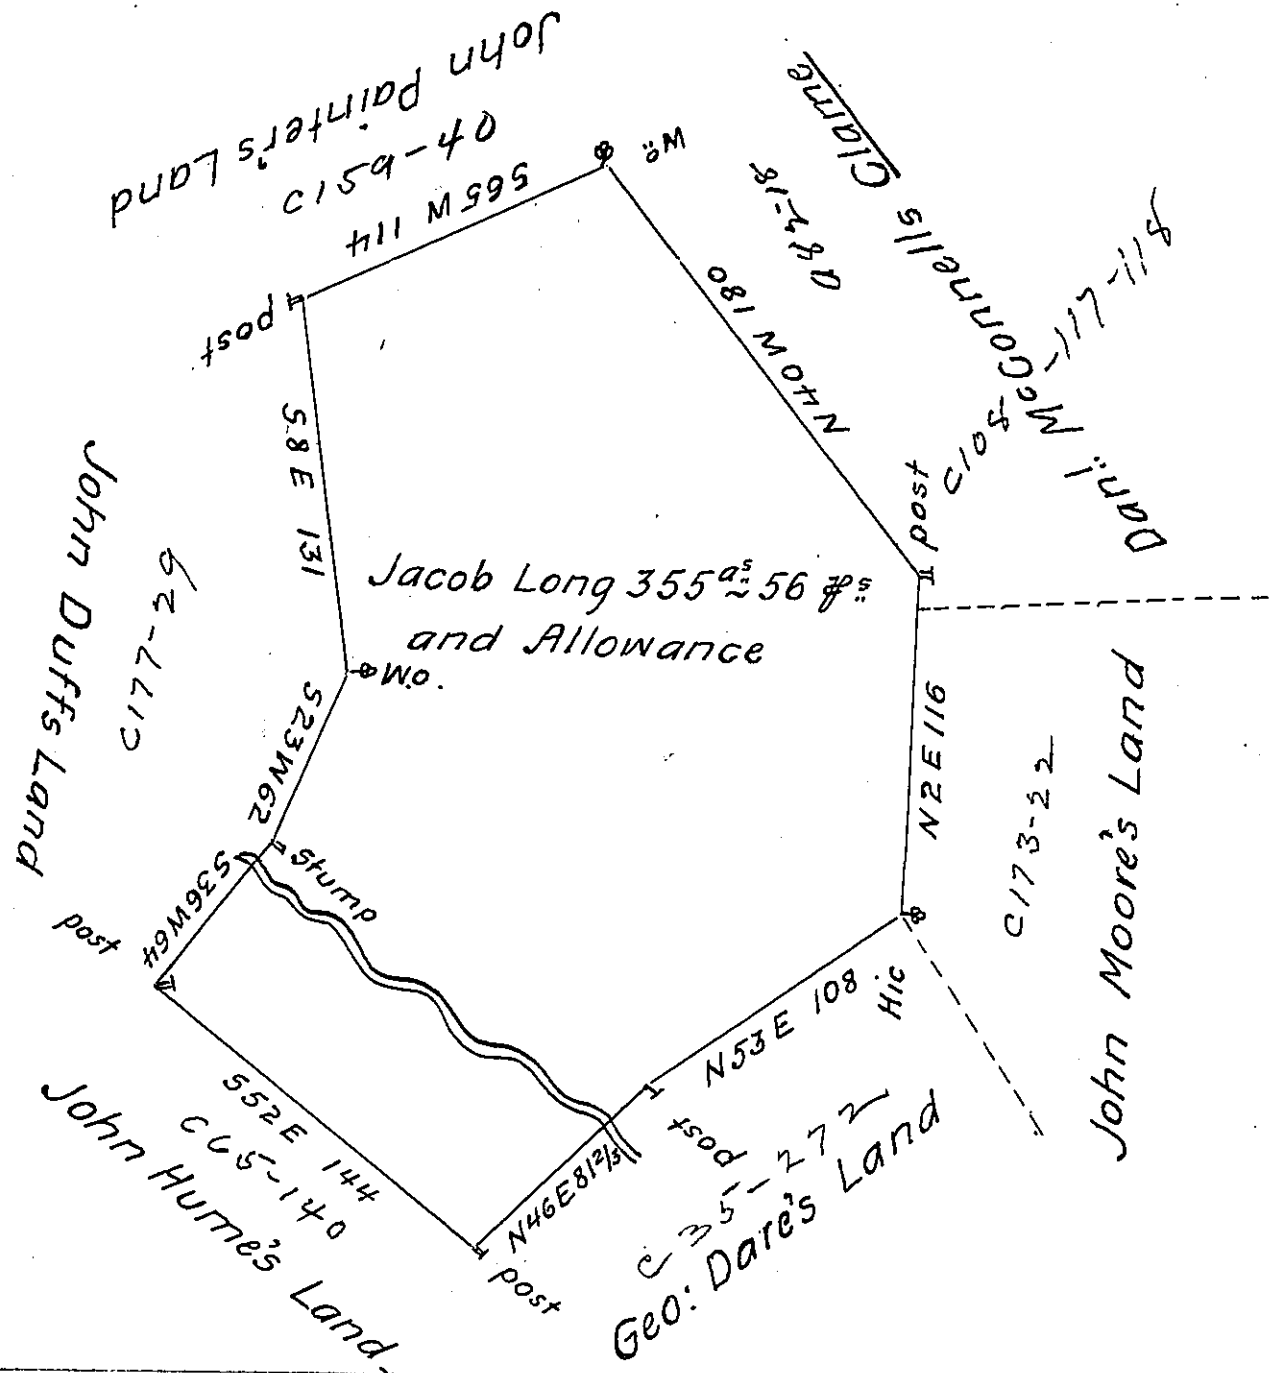 John Painter's Land
C159-40
S65W 114
Wo
Dan.l McConnells Clame
A83-18
C108-117-118
N40W 180
post
post
S8E 131
John Duffs Land
C177-29
Jacob Long 355 as 56 ps
and Allowance
W.O.
S23W62
Stump
S36W64
post
N2E 116
C173-22
John Moore's Land
Hic
N53E 108
post
C35-272
Geo: Dare's Land
N46E81 2/3
post
S52E 144
C65-140
John Hume's Land